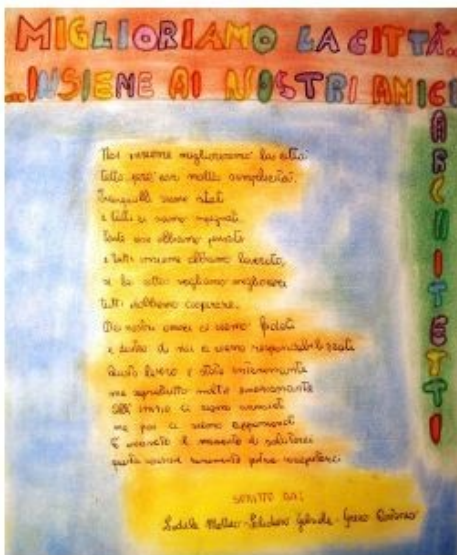 MIGLIORIAMO LA CITTÀ..
..INSIEME AI NOSTRI AMICI
ARCHITETTI
Noi insieme miglioreremo la città
tutto però con molta semplicità.
Tranquilli siamo stati
e tutti ci siamo impegnati.
Tante cose abbiamo
e tutti insieme abbiamo lavorato,
se la città vogliamo migliorare
tutti dobbiamo cooperare.
Dei nostri amici ci siamo fidati
e dentro di noi ci siamo responsabilizzati
Questo lavoro è stato interessante
ma soprattutto molto emozionante
All' inizio ci siamo annoiati
ma poi ci siamo appassionati
È arrivato il momento di salutarci
questa raramente potrà ricapitarci
SCRITTO DA:
Matteo - Gabriele - Greco